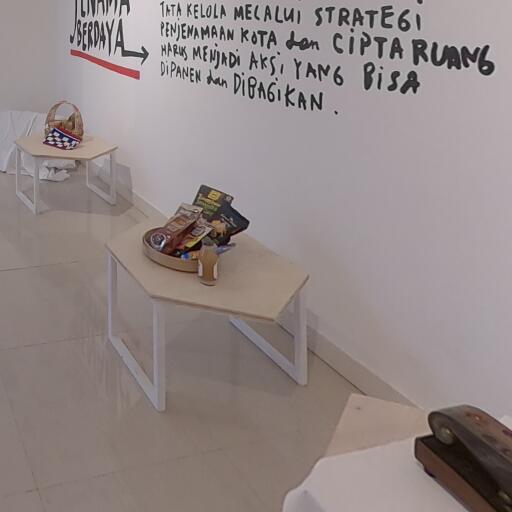 JENAMA
BERDAYA
TATA KELOLA MELALUI STRATEGI
PENJENAMAAN KOTA dan CIPTA RUANG
HARUS MENJADI AKSI YANG BISA
DIPANEN dan DIBAGIKAN.